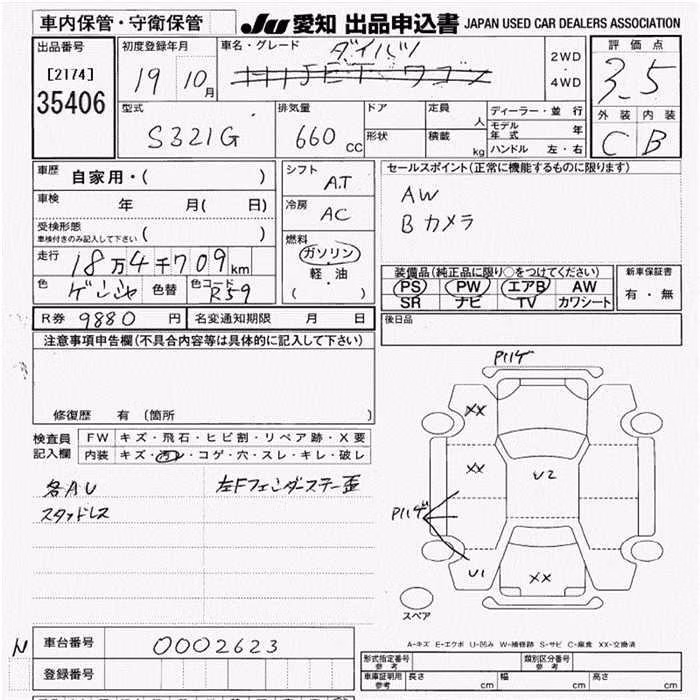 車内保管・守衛保管
JU 愛知 出品申込書 JAPAN USED CAR DEALERS ASSOCIATION
出品番号
[2174]
35406
初度登録年月
19 10月
車名・グレード
ダイハツ
2WD
・
4WD
評価点
3.5
外装 内装
C B
型式
S321G
排気量
660 cc
ドア
形状
定員 人
積載 kg
ディーラー・並行
モデル年式 年
ハンドル 左・右
車歴
自家用・( )
車検
年 月( 日)
受検形態
車検付きのみ記入して下さい ( )
走行
18万4千709km
色
色替
色コード
R59
シフト
A.T
冷房
AC
燃料
ガソリン
・
軽・油
( )
セールスポイント(正常に機能するものに限ります)
AW
Bカメラ
装備品(純正品に限り○をつけてください)
PS PW エアB AW
SR ナビ TV カワシート
新車保証書
有・無
R券 9880 円
名変通知期限 月 日
後日品
注意事項申告欄(不具合内容等は具体的に記入して下さい)
修復歴 有 (箇所 )
検査員
記入欄
FW キズ・飛石・ヒビ割・リペア跡・X要
内装 キズ・汚レ・コゲ・穴・スレ・キレ・破レ
各AU
スタッドレス
左Fフェンダーステー歪
P11ゲ
XX
XX
U2
P11ゲ
U1
XX
スペア
A-キズ E-エクボ U-凹み W-補修跡 S-サビ C-腐食 XX-交換済
N
車台番号
0002623
登録番号
形式指定番号
参考
類別区分番号
参考
車庫証明用
参考
長さ cm 幅 cm 高さ cm